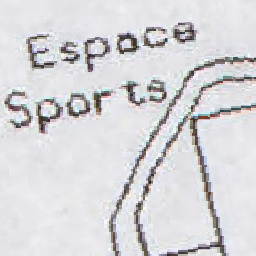 Espace
Sports